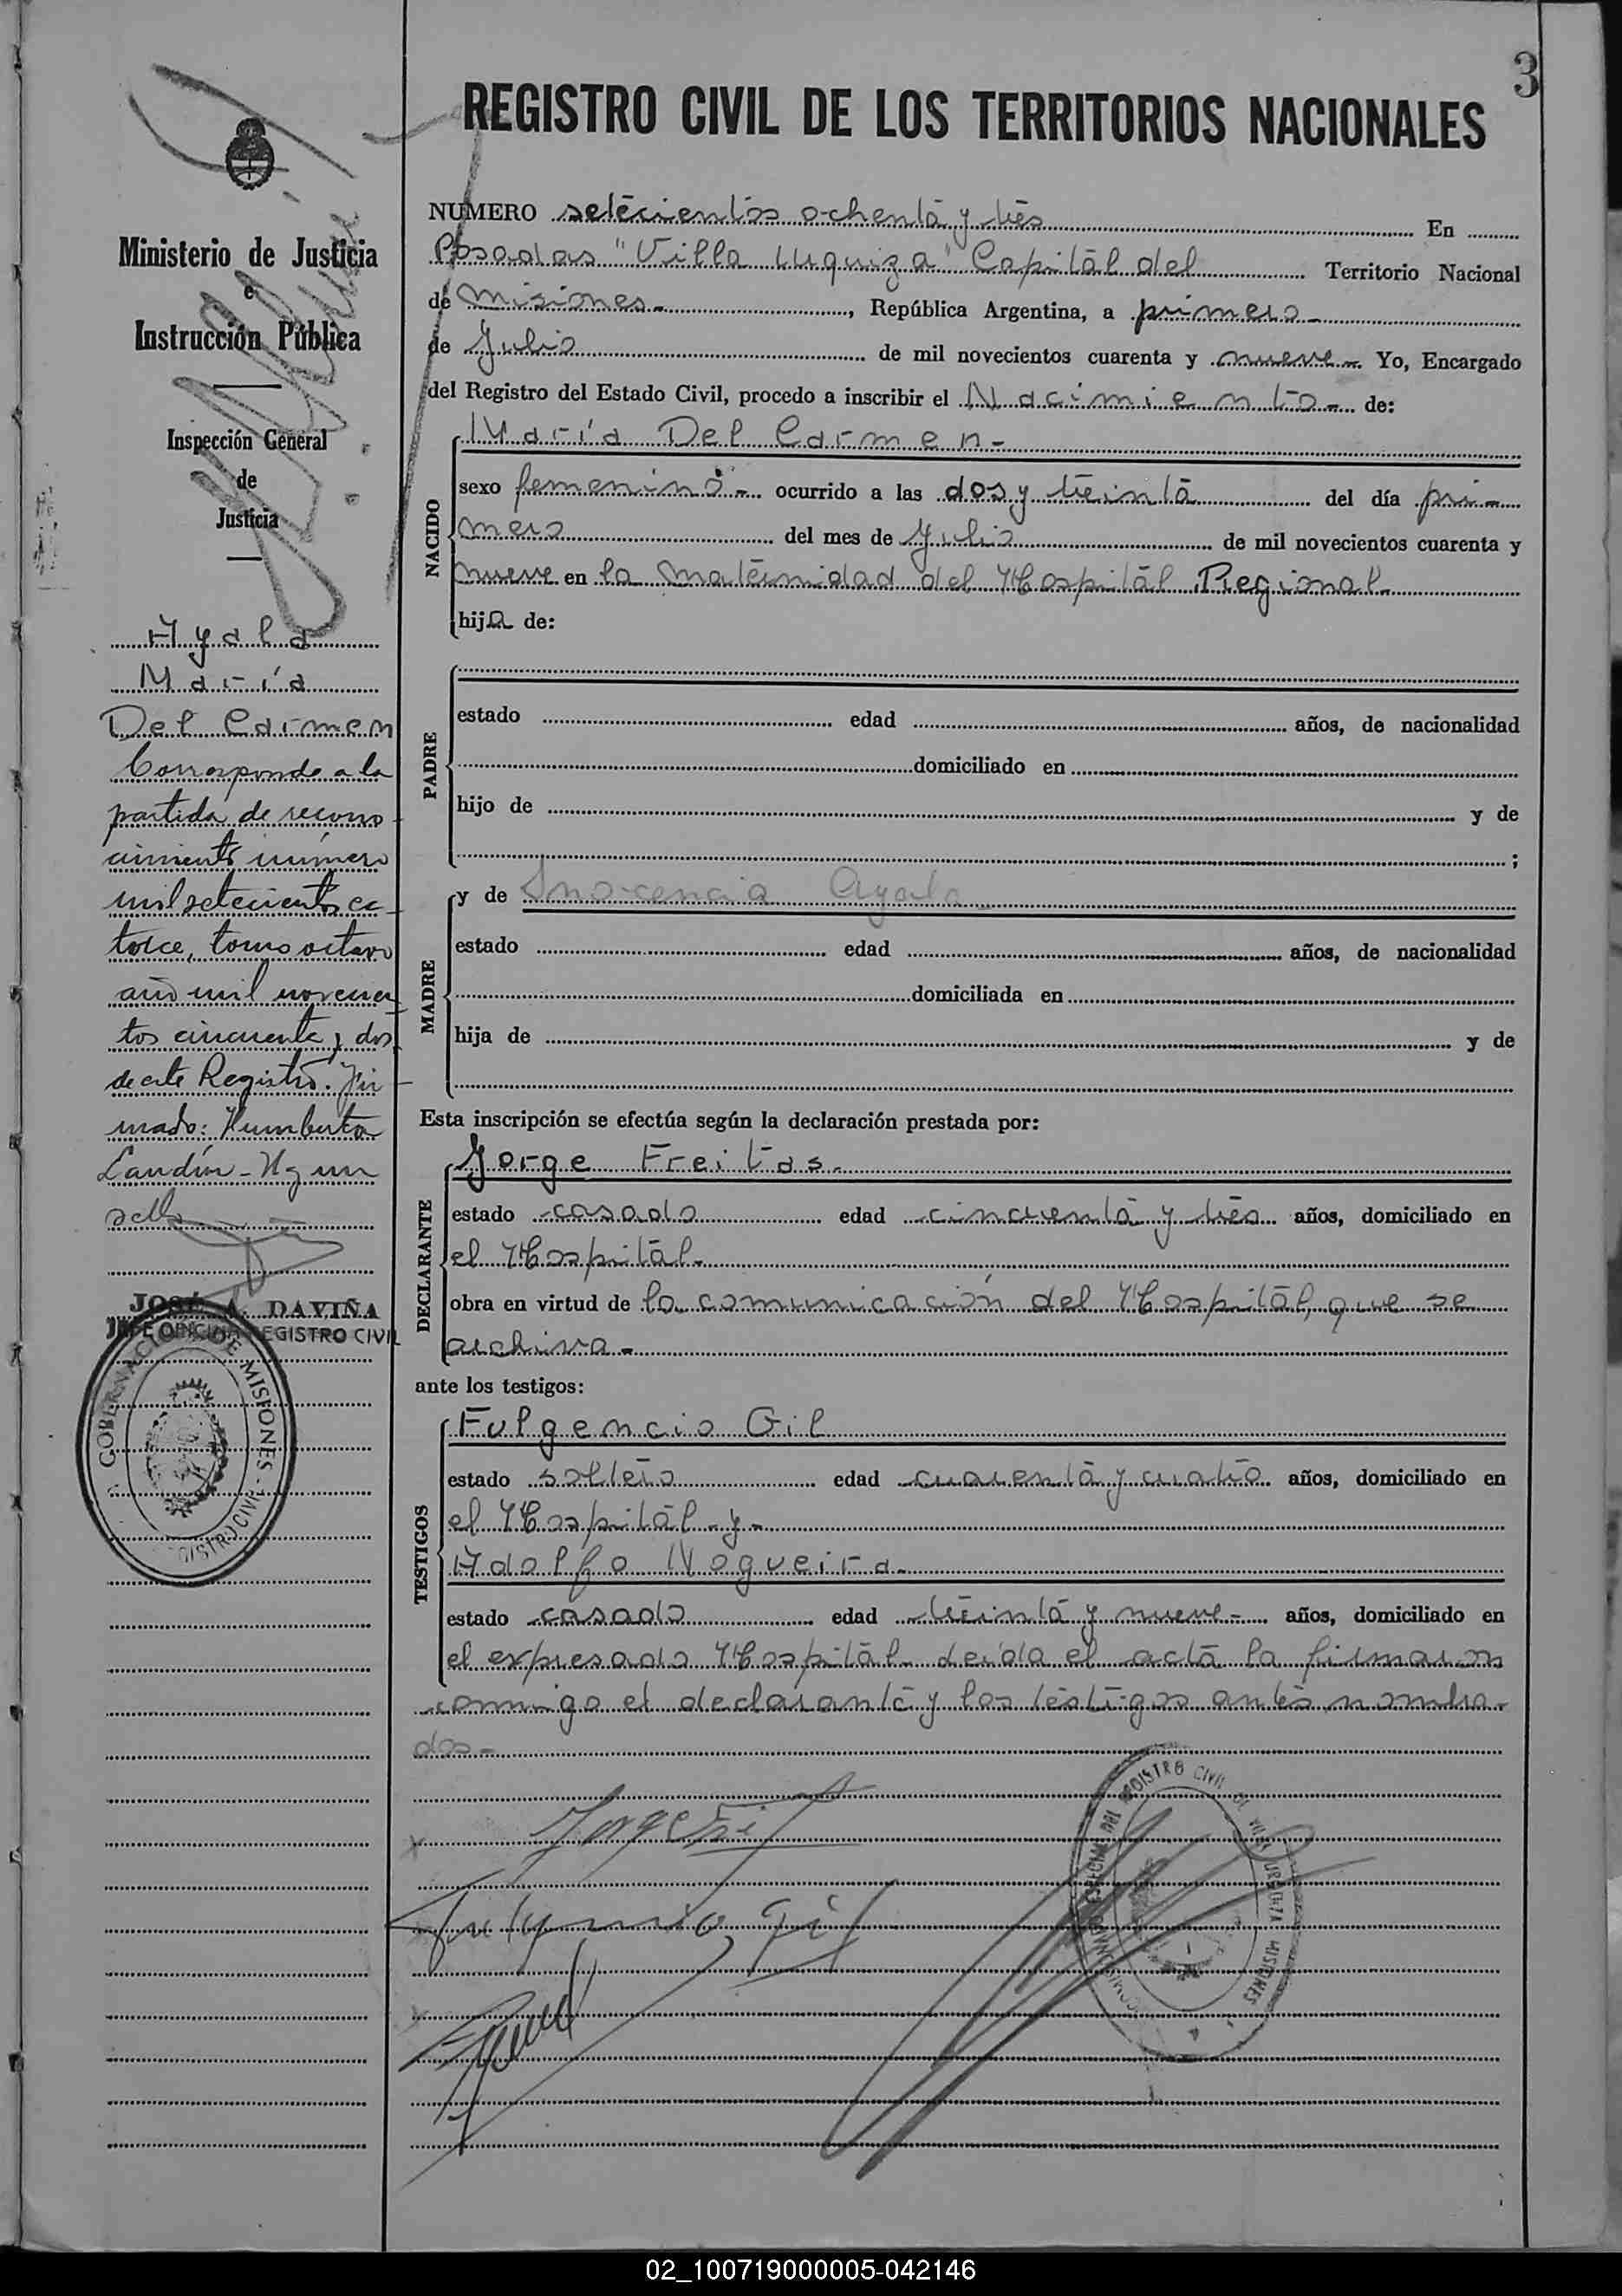 3
REGISTRO CIVIL DE LOS TERRITORIOS NACIONALES
Ministerio de Justicia
e
Instrucción Pública
Inspección General
de
Justicia
Ayala
María
Del Carmen
Corresponde a la
partida de recono-
cimiento número
mil setecientos ca-
torce, tomo octavo
año mil novecien-
tos cincuenta y dos
de este Registro. Fir-
mado: Humberto
Landín - Hay un
sello
JOSÉ A. DAVIÑA
JEFE OFICINA REGISTRO CIVIL
GOBERNACION DE MISIONES - REGISTRO CIVIL
NUMERO setecientos ochenta y tres En
Posadas "Villa Urquiza" Capital del Territorio Nacional
de Misiones.-, República Argentina, a primero-
de Julio de mil novecientos cuarenta y nueve-. Yo, Encargado
del Registro del Estado Civil, procedo a inscribir el Nacimiento- de:
NACIDO
María Del Carmen-
sexo femenino- ocurrido a las dos y treinta del día pri-
mero del mes de Julio de mil novecientos cuarenta y
nueve en la maternidad del Hospital Regional-
hija de:
PADRE
estado edad años, de nacionalidad
domiciliado en
hijo de y de
;
MADRE
y de Inocencia Ayala-
estado edad años, de nacionalidad
domiciliada en
hija de y de
Esta inscripción se efectúa según la declaración prestada por:
DECLARANTE
Jorge Freitas-
estado casado edad cincuenta y tres años, domiciliado en
el Hospital-
obra en virtud de la comunicación del Hospital, que se
archiva-
ante los testigos:
TESTIGOS
Fulgencio Gil
estado soltero edad cuarenta y cuatro años, domiciliado en
el Hospital-y-
Adolfo Nogueira-
estado casado edad treinta y nueve- años, domiciliado en
el expresado Hospital- leída el acta la firmaron
conmigo el declarante y los testigos antes nombra-
dos-
Fulgencio Gil
REGISTRO CIVIL DE VILLA URQUIZA MISIONES
02_100719000005-042146